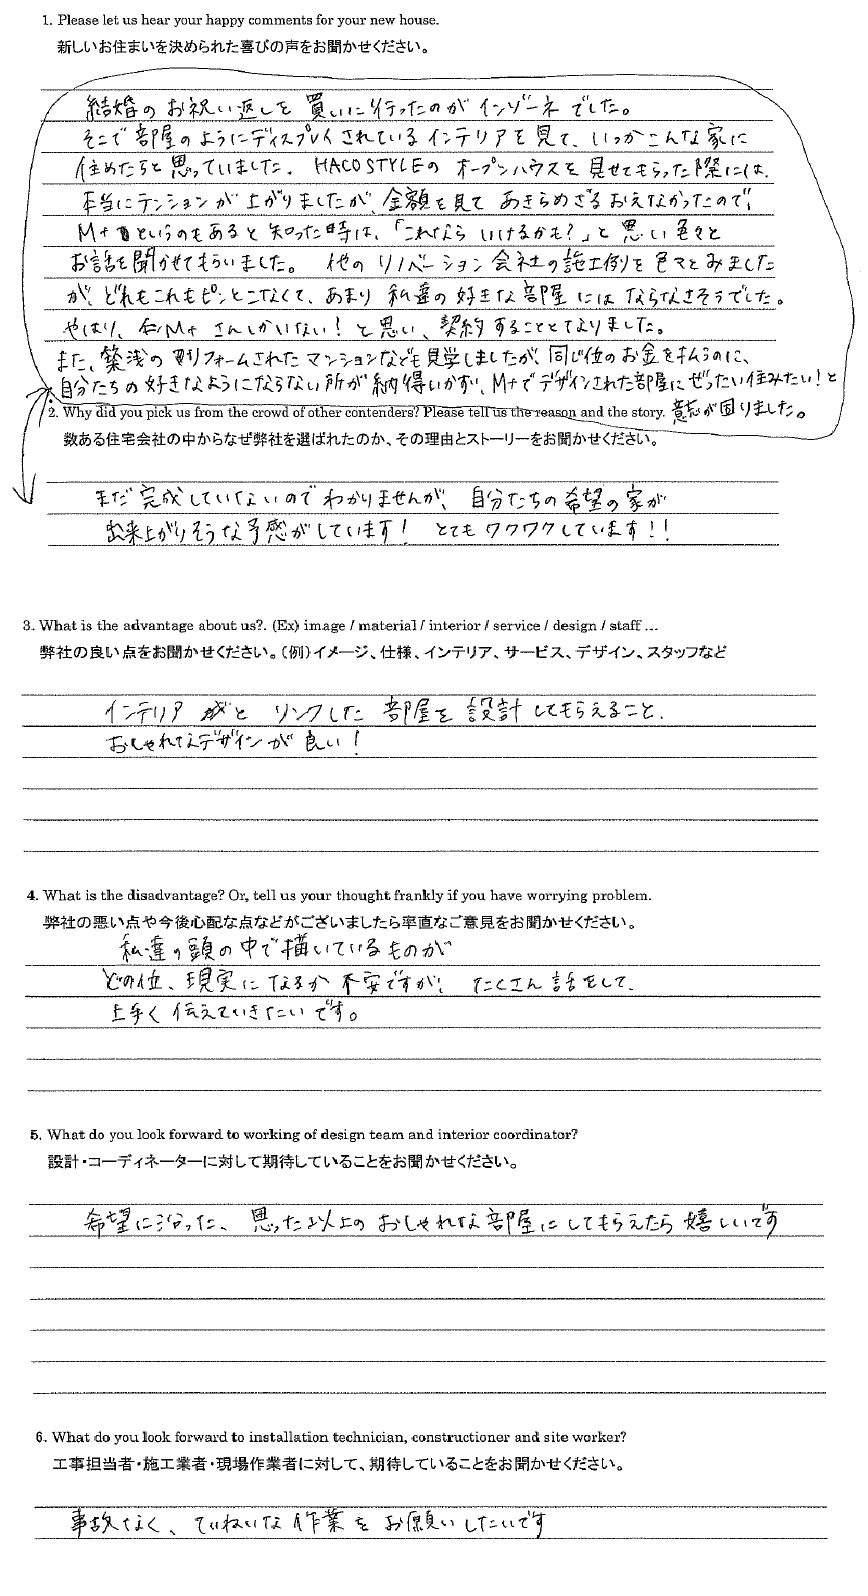 1. Please let us hear your happy comments for your new house.
新しいお住まいを決められた喜びの声をお聞かせください。
結婚のお祝い返しを買いに行ったのがインゾーネでした。
そこで部屋のようにディスプレイされているインテリアを見て、いつかこんな家に
住めたらと思っていました。HACOSTYLEのオープンハウスを見せてもらった際には、
本当にテンションが上がりましたが、金額を見てあきらめざるおえなかったので、
M+というのもあると知った時は、「これならいけるかも?」と思い色々と
お話を聞かせてもらいました。他のリノベーション会社の施工例も色々とみました
が、どれもこれもピンとこなくて、あまり私達の好きな部屋にはならなさそうでした。
やはり、M+さんしかいない!と思い、契約することとなりました。
また、築浅のリフォームされたマンションなども見学しましたが、同じ位のお金を払うのに、
自分たちの好きなようにならない所が納得いかず、M+でデザインされた部屋にぜったい住みたい!と
2. Why did you pick us from the crowd of other contenders? Please tell us the reason and the story. 意志が固りました。
数ある住宅会社の中からなぜ弊社を選ばれたのか、その理由とストーリーをお聞かせください。
まだ完成していないのでわかりませんが、自分たちの希望の家が
出来上がりそうな予感がしています! とてもワクワクしています!!
3. What is the advantage about us?. (Ex) image / material / interior / service / design / staff ...
弊社の良い点をお聞かせください。(例)イメージ、仕様、インテリア、サービス、デザイン、スタッフなど
インテリアとリンクした部屋を設計してもらえること。
おしゃれなデザインが良い!
4. What is the disadvantage? Or, tell us your thought frankly if you have worrying problem.
弊社の悪い点や今後心配な点などがございましたら率直なご意見をお聞かせください。
私達の頭の中で描いているものが
どの位、現実になるか不安ですが、たくさん話をして、
上手く伝えていきたいです。
5. What do you look forward to working of design team and interior coordinator?
設計・コーディネーターに対して期待していることをお聞かせください。
希望に沿った、思った以上のおしゃれな部屋にしてもらえたら嬉しいです
6. What do you look forward to installation technician, constructioner and site worker?
工事担当者・施工業者・現場作業者に対して、期待していることをお聞かせください。
事故なく、ていねいな作業をお願いしたいです